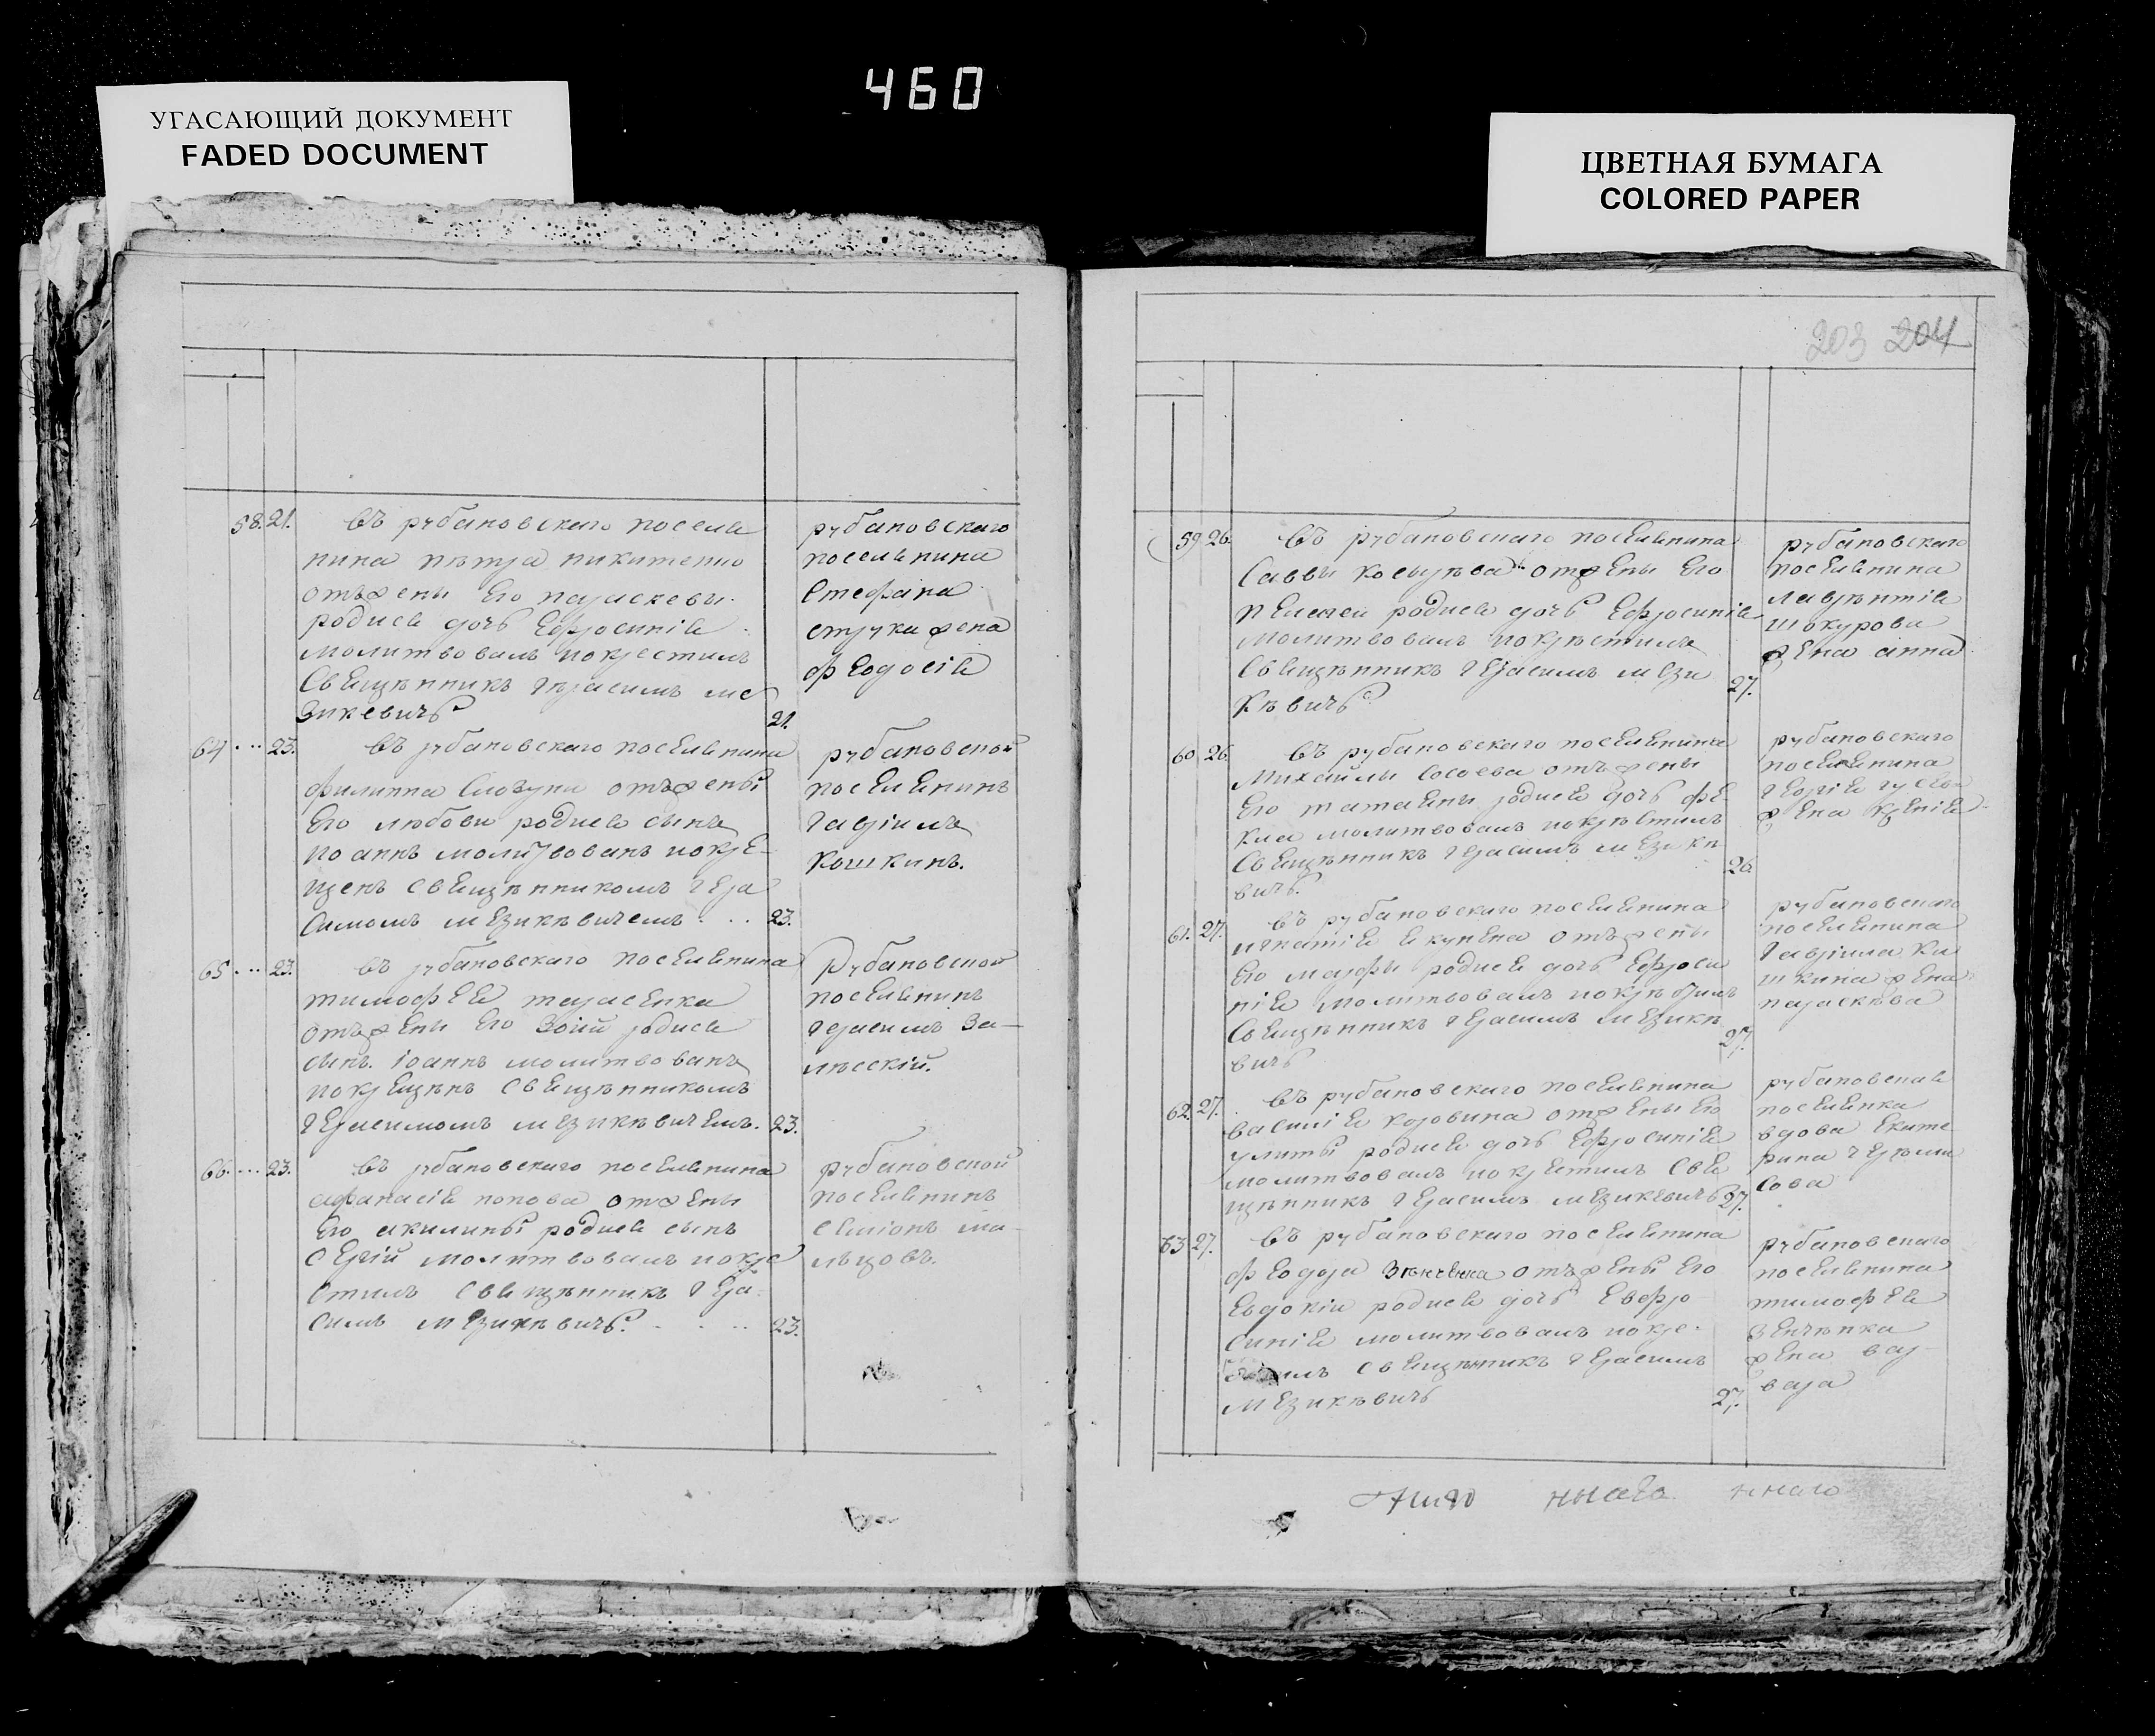 460
УГАСАЮЩИЙ ДОКУМЕНТ
FADED DOCUMENT
ЦВЕТНАЯ БУМАГА
COLORED PAPER
58. 21.
въ рубановскаго поселя
нина пѣтра никитенко
отъ жены его параскевы
родися дочь Ефросинія
молитвовалъ и окрестилъ
Священникъ Герасимъ ме
зикевичъ
21.
рубановскаго
поселянина
Стефана
струка жена
феодосія
64 23.
въ рубановскаго поселянина
филиппа отъ жены
Его любови родися сынъ
иоаннъ молитвованъ и окре-
щенъ священникомъ Гера
симомъ мезикѣвичемъ 23.
рубановской
поселянинъ
Гавріилъ
кошкинъ.
65 23.
въ рубановскаго поселянина
тимофея тарасенка
отъ жены его Зоіи родися
сынъ іоаннъ молитвованъ
и окрещенъ священникомъ
Герасимомъ мезикѣвичемъ. 23.
Рубановской
поселянинъ
Герасимъ За-
лѣсскій.
66. 23.
въ рубановскаго поселянина
афанасія попова от жены
Его акилины родися сынъ
Сергій молитвовалъ и окре
стилъ священникъ Гера
симъ мезикѣвичъ. 23.
рубановской
поселянинъ
Симіонъ ма-
льцовъ.
203 204
59 26.
въ рубановскаго поселянина
Саввы от жены Его
Пелагеи родися дочь Ефросинія
молитвовалъ и окрѣстилъ
Священникъ Герасимъ мези
кѣвичъ
27.
рубановскаго
поселянина
лаврѣнтія
шокурова
жена анна
60 26.
въ рубановскаго поселянина
Михаилы Сосоева отъ жены
Его татіяны родися дочь фе-
кла молитвовалъ и окрѣстилъ
Священникъ Герасимъ мезикѣ
вичъ.
26.
рубановскаго
поселянина
Георгія
жена ксенія
61. 27.
въ рубановскаго поселянина
игнатія якунена отъ жены
Его марфы родися дочь Ефроси
нія молитвовалъ и окрѣстилъ
Священникъ Герасимъ мезикѣ
вичъ
27.
рубановскаго
поселянина
Гавріила ки
шкина жена
параскѣва
62. 27.
въ рубановскаго поселянина
василія коровина от жены Его
улиты родися дочь Ефросинія
молитвовалъ и окрестилъ Свя
щенникъ Герасимъ мезикевичъ 27.
рубановская
поселянка
вдова Екате
рина
сова
63 27.
въ рубановскаго поселянина
феодора Зѣнченка отъ жены Его
Евдокіи родися дочь Евфро
синія молитвовалъ и окре-
стилъ священникъ Герасимъ
мезикѣвичъ
27.
рубановскаго
поселянина
тимофея
Зенчѣнка
жена вар-
вара
ннаго